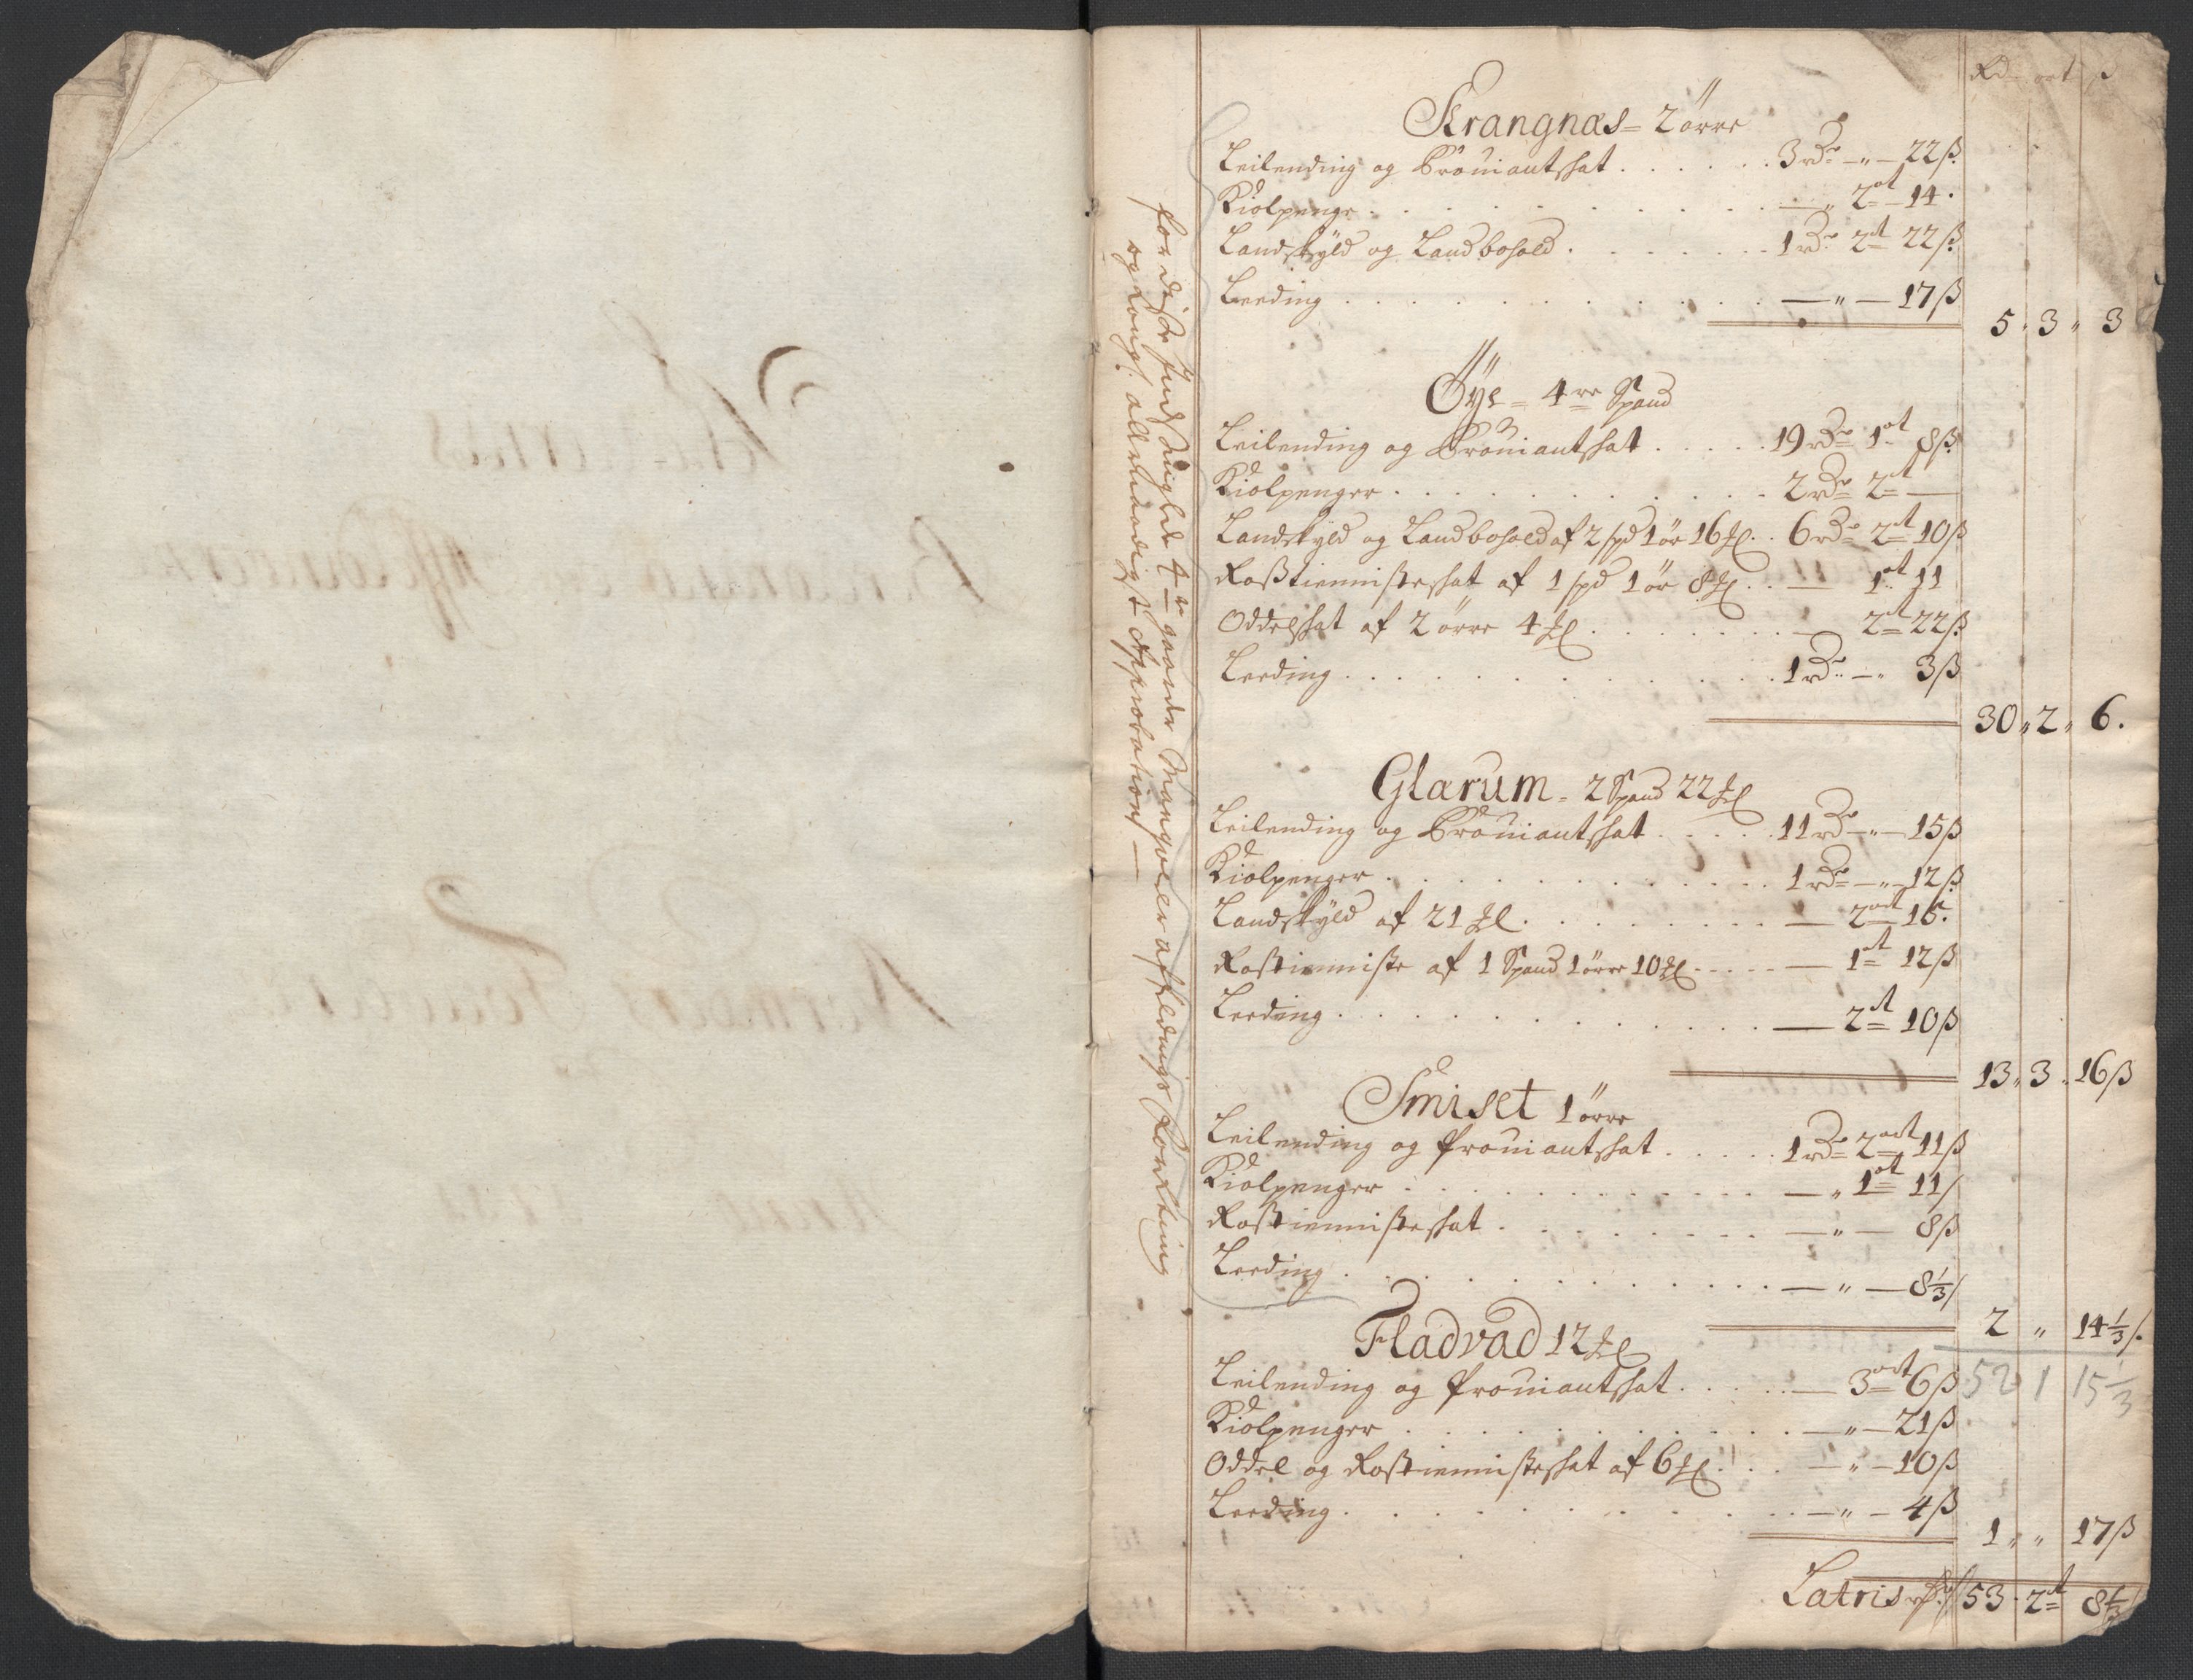 Rd ort ß
Krangnæs = 2 ørre
Leilending og Proviantskat . . . . . 3 rdr — " — 22 ß
Kiolpenge . . . . . — " 2 ort 14 .
Landskyld og Landbohold . . . . . 1 rdr 2 ort 22 ß
Leeding . . . . . — " — 17 ß
5 . 3 " 3
Øye = 4re Spand
Leilending og Proviantskat . . . . . 19 rdr 1 ort 8 ß
Kiolpenger . . . . . 2 rdr 2 ort —
Landskyld og Landbohold af 2 spd 1 ør 16 . . 6 rdr 2 ort 10 ß
Rostienniste skat af 1 spd 1 ør 8 . . — 1 ort 11
Oddelskat af 2 ørre 4 . . . . . — 2 ort 22 ß
Leeding . . . . . 1 rdr — " 3 ß
30 " 2 " 6 .
Glærum = 2 Spand 22
Leilending og Proviantskat . . . . . 11 rdr — " — 15 ß
Kiolpenger . . . . . 1 rdr — " — 12 ß
Landskyld af 21 . . . . . — 2 ort 15 .
Rostienniste af 1 Spand 1 ørre 10 . . . . . — 1 ort 12 ß
Leeding . . . . . — 2 ort 10 ß
13 " 3 . 16 ß
Smiset 1 ørre
Leilending og Proviantskat . . . . . 1 rdr 2 ort 11 ß
Kiolpenger . . . . . — " 1 ort 11 /
Rostiennisteskat . . . . . — " — 8 ß
Leeding . . . . . — " — 8 1/3 /
2 " 14 1/3 /.
Fladvad 12
52 1 15 1/3
Leilending og Proviantskat . . . . . — 3 ort 6 ß
Kiolpenger . . . . . — " — 21 ß
Oddel og Rostiennisteskat af 6 . . . — " — 10 ß
Leeding . . . . . — " — 4 ß
1 " " 17 ß
Latris 53 . 2 ort 8 1/3
for disse 4re gaarde Mangoler afseldnings Qvitering
og allernaadigst Approbation —